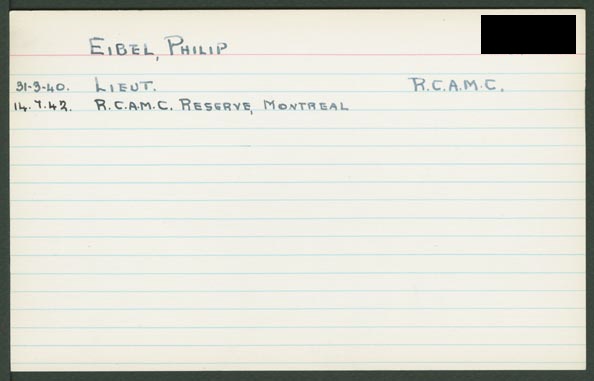 EIBEL, PHILIP
31-3-40. LIEUT. R.C.A.M.C.
14.7.42. R.C.A.M.C. RESERVE, MONTREAL